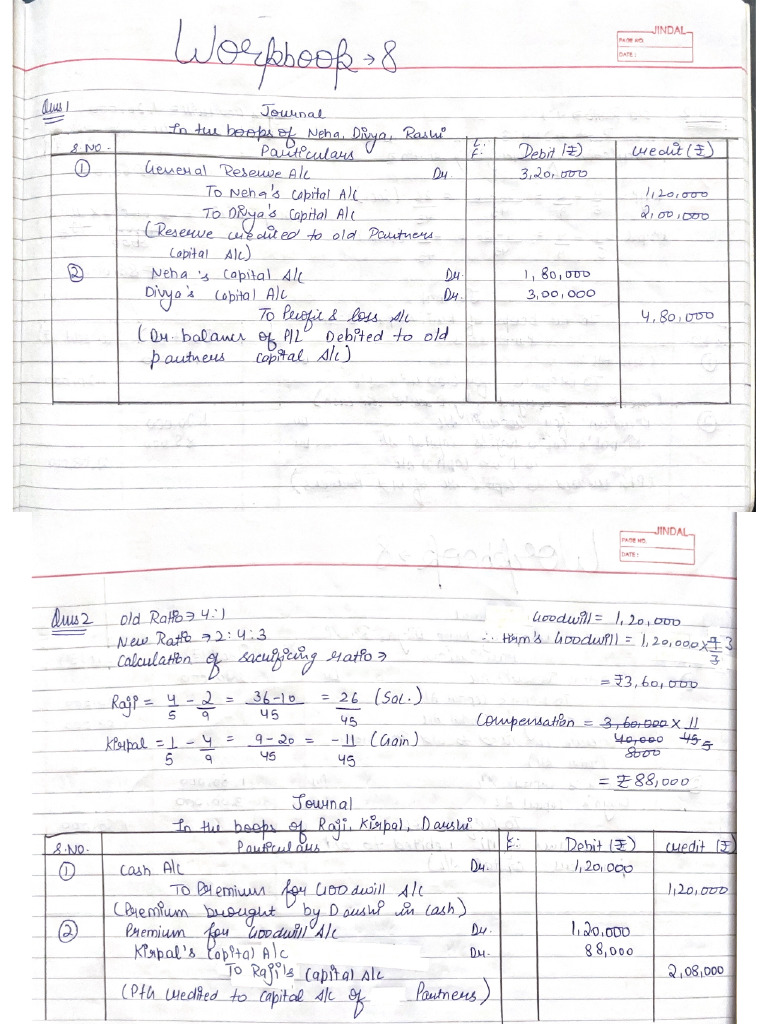 Workbook → 8
JINDAL
PAGE NO.
DATE:
Ques 1
Journal
In the books of Neha, Divya, Rashi
S.NO. Particulars L.F. Debit (₹) Credit (₹)
① General Reserve A/c Dr. 3,20,000
To Neha's Capital A/c 1,20,000
To Divya's Capital A/c 2,00,000
(Reserve credited to old Partners
Capital A/c)
② Neha's Capital A/c Dr. 1,80,000
Divya's Capital A/c Dr. 3,00,000
To Profit & loss A/c 4,80,000
(Dr. balance of P/L Debited to old
partners capital A/c)
JINDAL
PAGE NO.
DATE:
Ques 2 Old Ratio → 4:1 Goodwill = 1,20,000
New Ratio → 2:4:3 ∴ Firm's Goodwill = 1,20,000 × 9/3 3
Calculation of sacrificing ratio →
= ₹3,60,000
Raji = 4/5 - 2/9 = 36-10/45 = 26/45 (Sac.)
Compensation = 3,60,000 × 11/45 5
40,000
8000
Kirpal = 1/5 - 4/9 = 9-20/45 = -11/45 (Gain)
= ₹88,000
Journal
In the books of Raji, Kirpal, Daushi
S.NO. Particulars L.F. Debit (₹) Credit (₹)
① Cash A/c Dr. 1,20,000
To Premium for Goodwill A/c 1,20,000
(Premium brought by Daushi in cash)
② Premium for Goodwill A/c Dr. 1,20,000
Kirpal's Capital A/c Dr. 88,000
To Raji's Capital A/c 2,08,000
(Pfg credited to capital A/c of Partners)